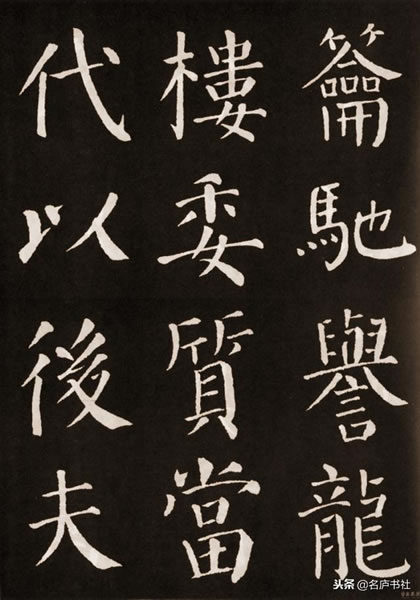 籥馳譽龍
樓委質當
代以後夫
头条 @名庐书社